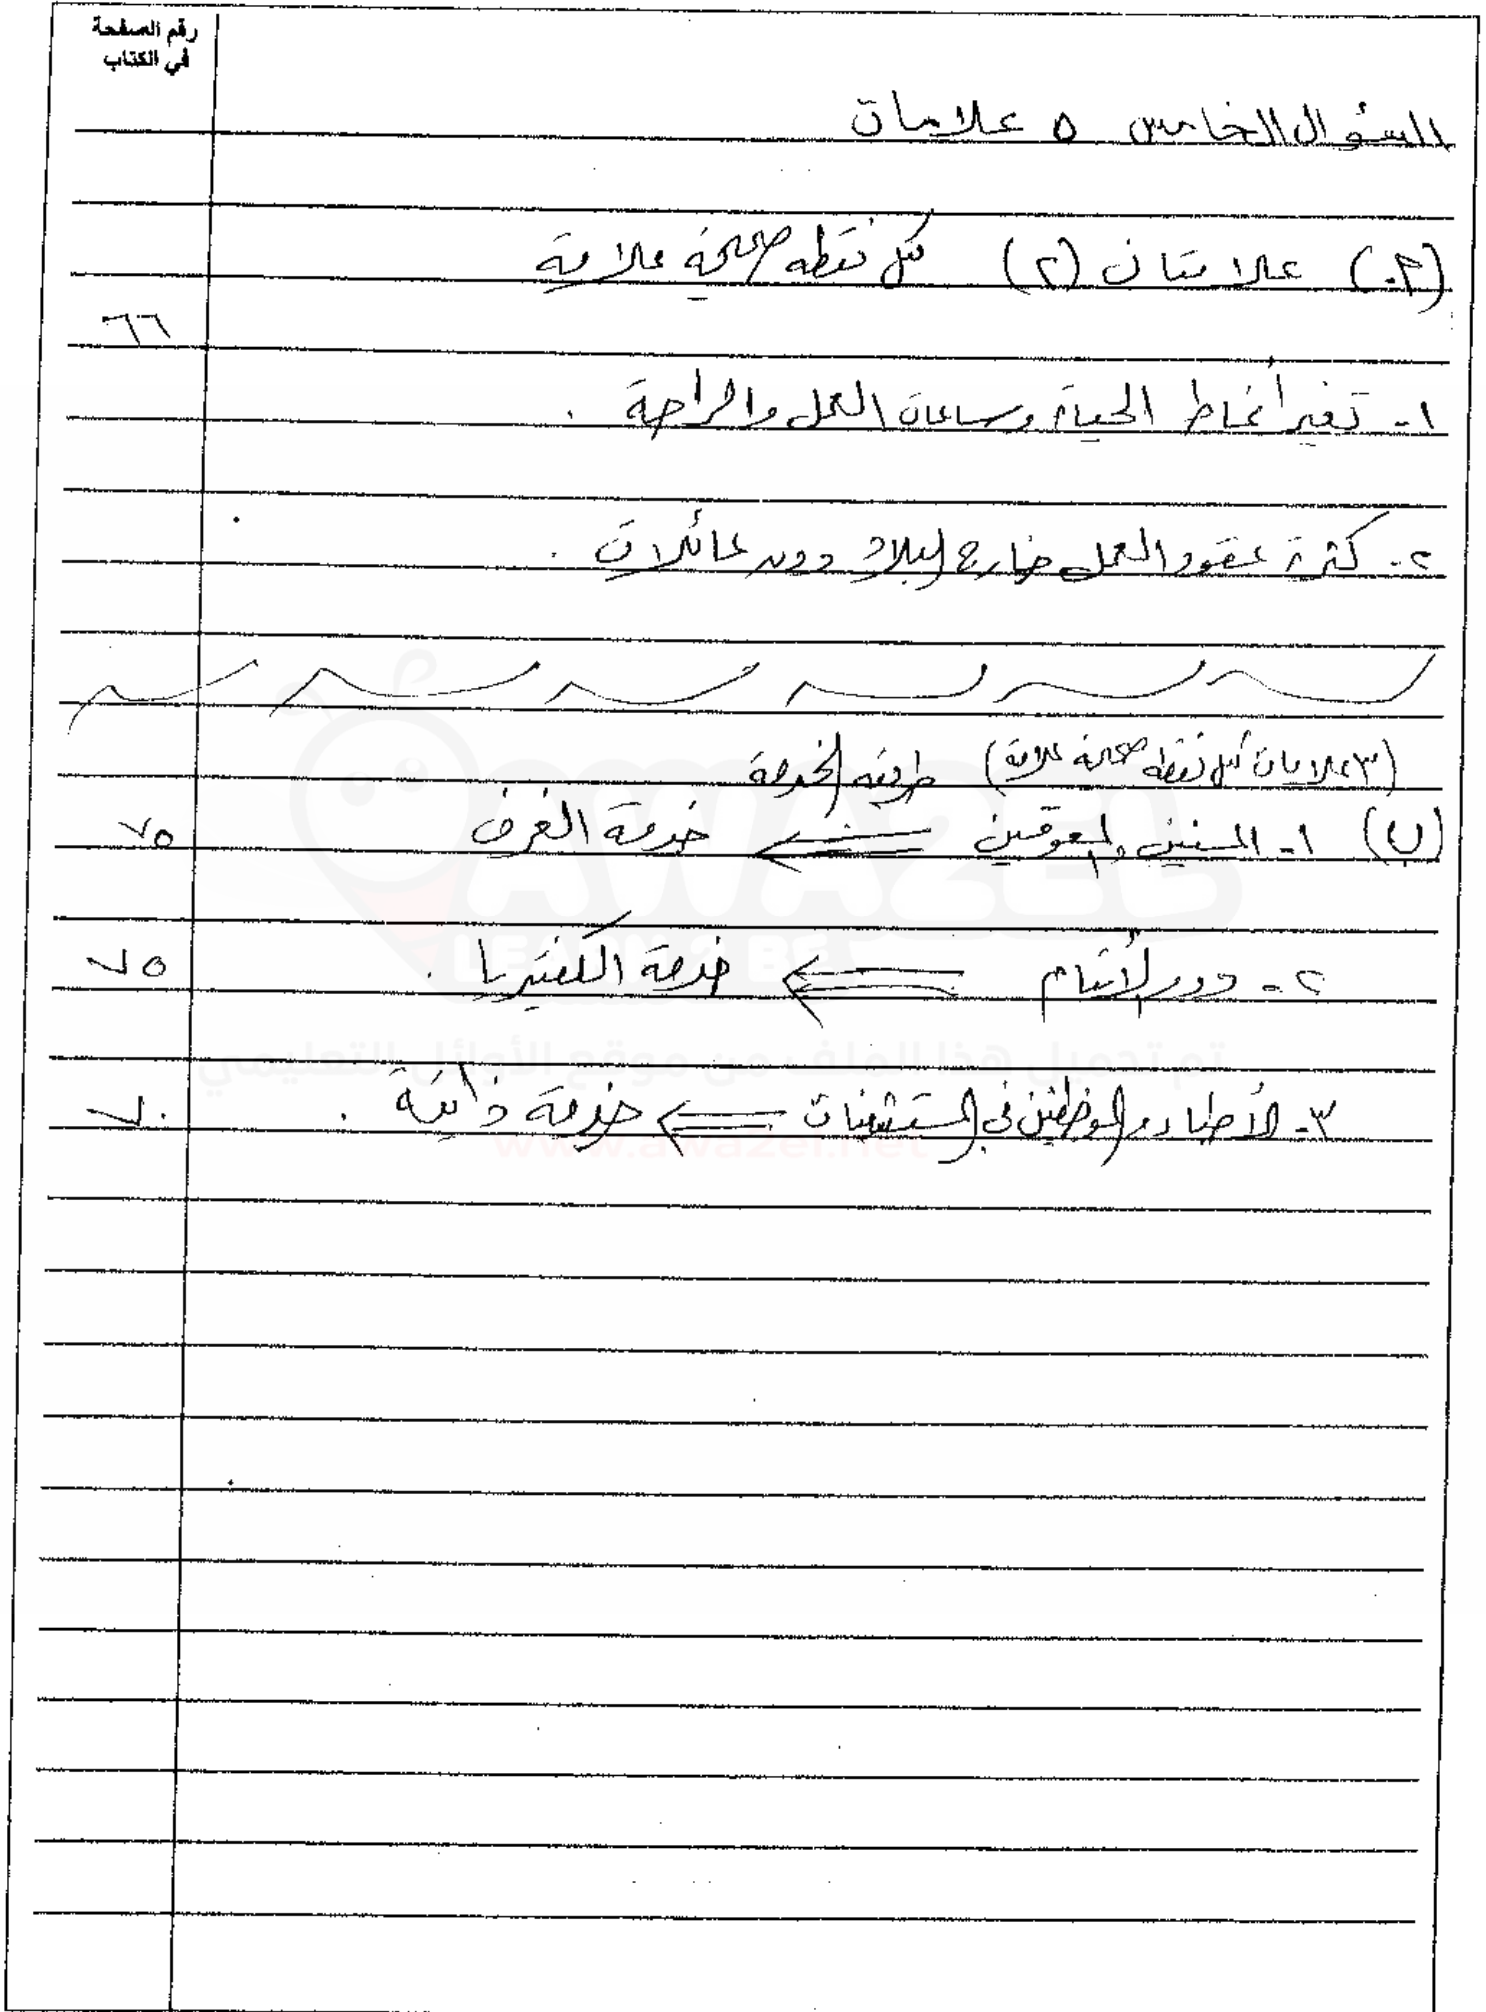 رقم الصفحة
في الكتاب
السؤال الخامس ٥ علامات
(P.) علامتان (٢) كل نقطة صحيحة علامة
٦٦
١- تغير أنماط الحياة وساعات العمل والراحة .
٢- كثرة عقود العمل خارج البلاد دون عائلات .
(٣ علامات كل نقطة صحيحة علامة) طريقة الخدمة
(ب) ١- المسنين والمعوقين ⇐ خدمة الغرف
٧٥
٢- دور الأيتام ⇐ خدمة الكفتيريا .
٧٥
٣- الأطباء والموظفين في المستشفيات ⇐ خدمة ذاتية .
٧٠
AWAZEL
LEARN 2 BE
تم تحميل هذا الملف من موقع الأوائل التعليمي
www.awazel.net